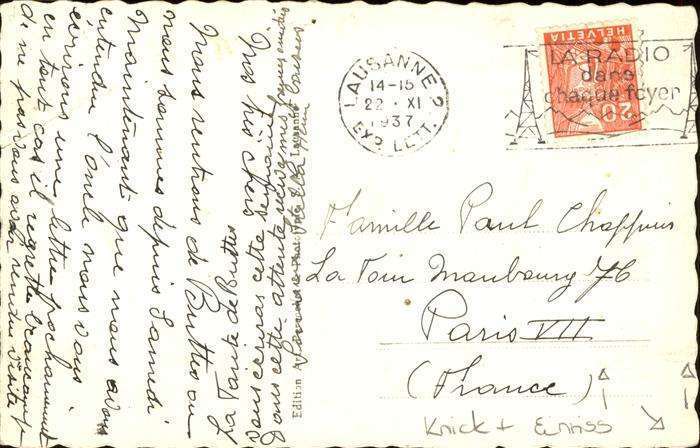 Mes très chers
Nous rentrons de Buttes où
nous sommes depuis Samedi
Maintenant que nous avons
entendu l'oncle nous vous
écrirons une lettre prochainement
en tout cas il regrette beaucoup
de ne pas vous avoir rendu visite
La Tante de Buttes
vous écrira cette semaine
Dans cette attente recevez
Edition Lausanne
LAUSANNE 2
14-15
22 · XI
1937
EXP. LETT.
HELVETIA
20
LA RADIO
dans
chaque foyer
Famille Paul Chappuis
La Tour Maubourg 76
Paris VII
(France)
Knick + Einriss